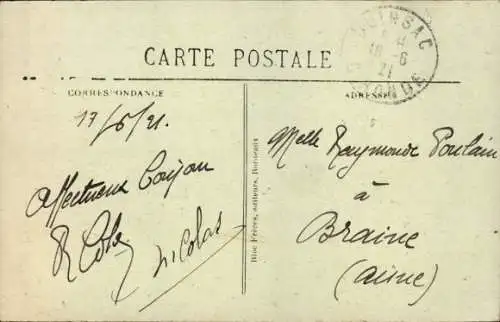 CARTE POSTALE
CORRESPONDANCE
17/6/21.
Affectueux
R Col
Nicolas
Bloc Frères, éditeurs, Bordeaux
GIRONDE
18 -6
21
ADRESSE
Melle Raymonde Poulain
à
Braine
(Aisne)